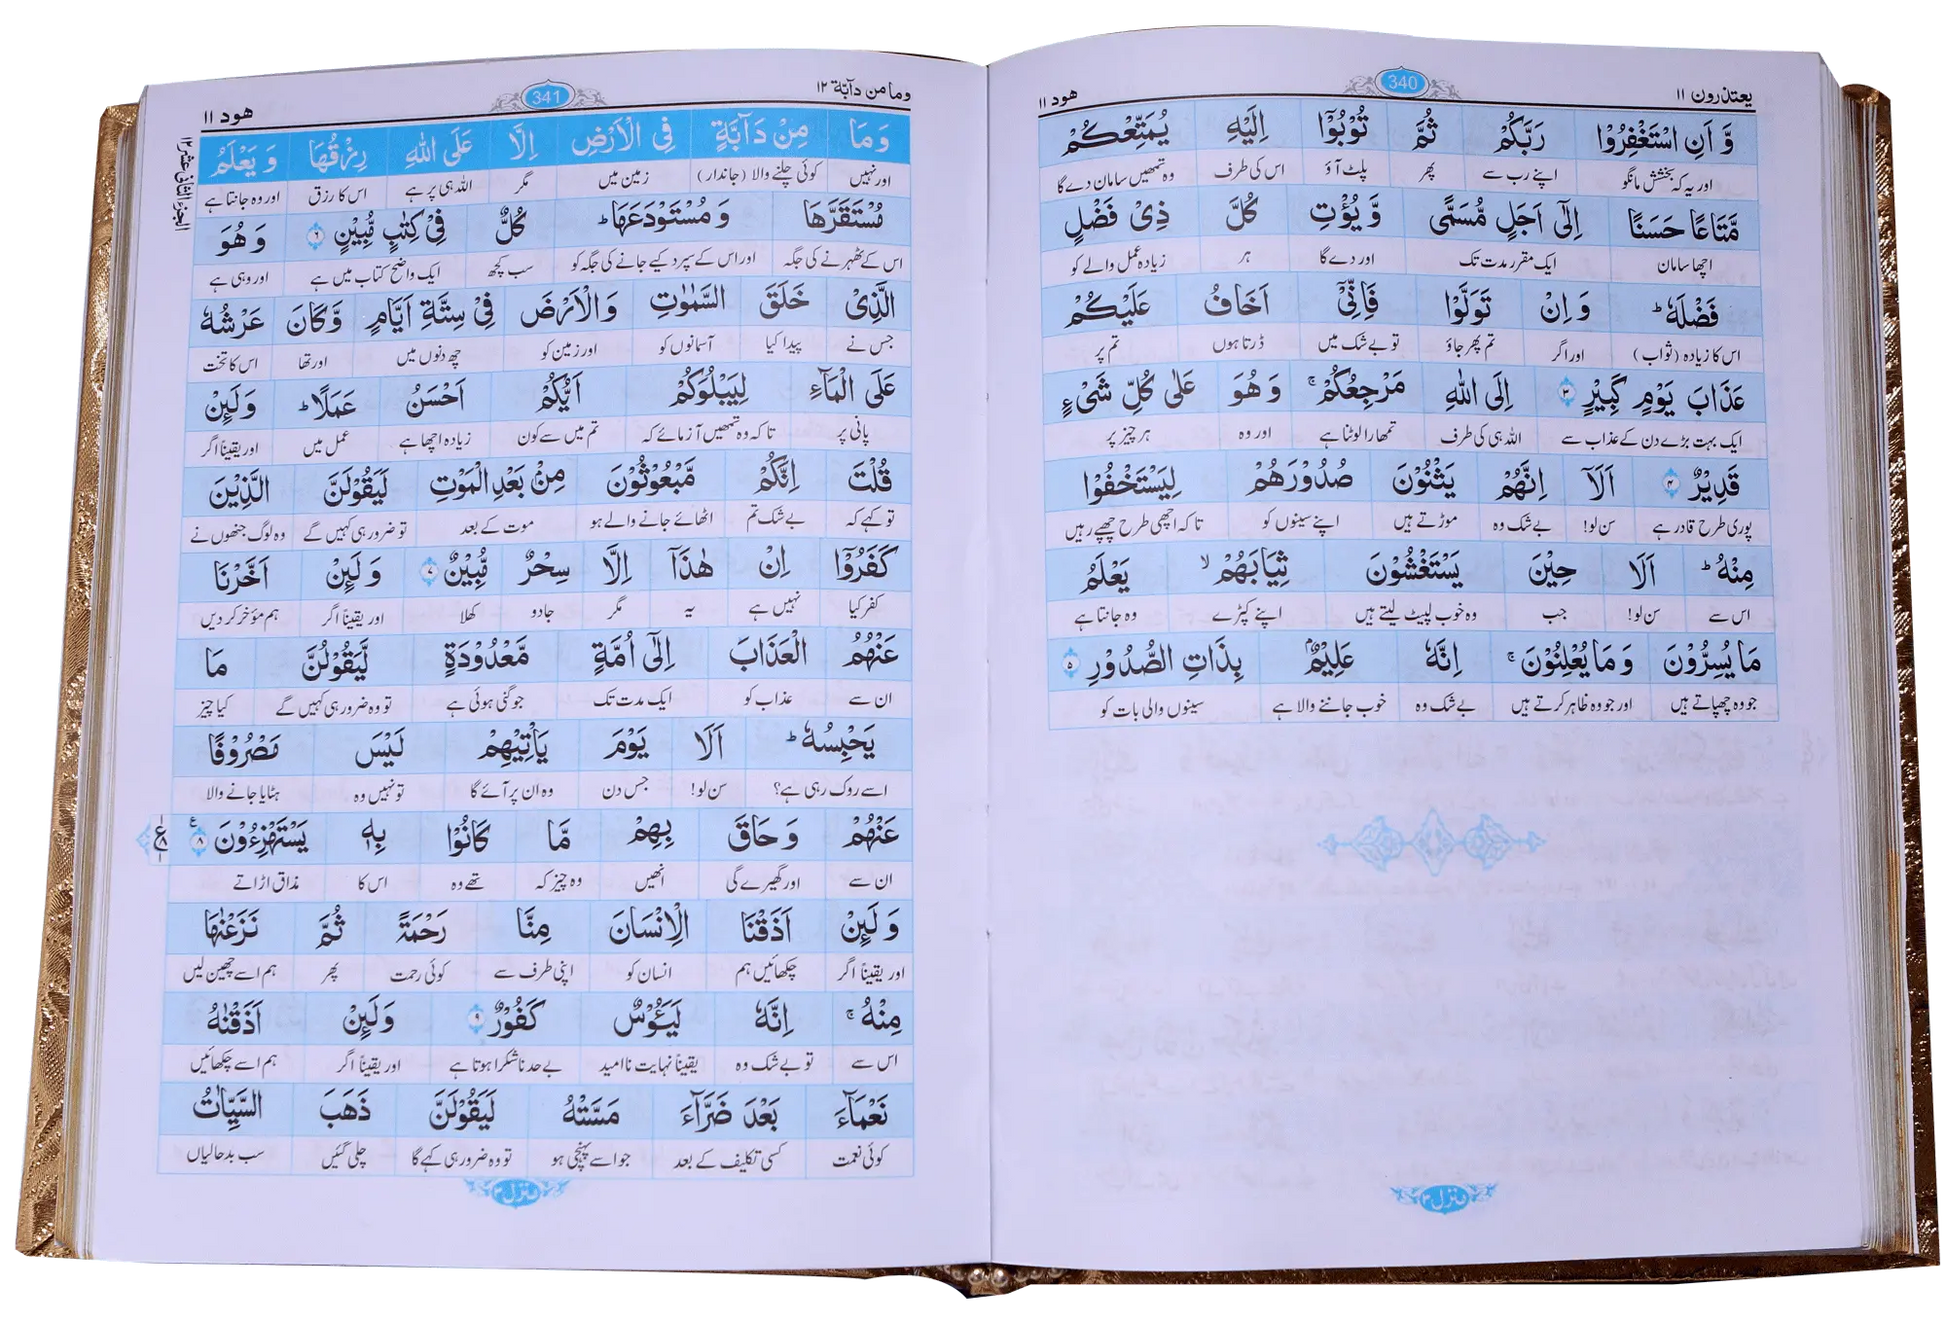 یعتذرون ۱۱
340
هود ۱۱
وَّ اَنِ اسْتَغْفِرُوْا رَبَّكُمْ ثُمَّ تُوْبُوْۤا اِلَيْهِ يُمَتِّعْكُمْ
اور یہ کہ بخشش مانگو اپنے رب سے پھر پلٹ آؤ اس کی طرف وہ تمھیں سامان دے گا
مَّتَاعًا حَسَنًا اِلٰۤى اَجَلٍ مُّسَمًّى وَّ يُؤْتِ كُلَّ ذِيْ فَضْلٍ
اچھا سامان ایک مقرر مدت تک اور دے گا ہر زیادہ عمل والے کو
فَضْلَهٗ ؕ وَ اِنْ تَوَلَّوْا فَاِنِّيْۤ اَخَافُ عَلَيْكُمْ
اس کا زیادہ (ثواب) اور اگر تم پھر جاؤ تو بے شک میں ڈرتا ہوں تم پر
عَذَابَ يَوْمٍ كَبِيْرٍ ۳ اِلَى اللّٰهِ مَرْجِعُكُمْ ۚ وَ هُوَ عَلٰى كُلِّ شَيْءٍ
ایک بہت بڑے دن کے عذاب سے اللہ ہی کی طرف تمھارا لوٹنا ہے اور وہ ہر چیز پر
قَدِيْرٌ ۴ اَلَاۤ اِنَّهُمْ يَثْنُوْنَ صُدُوْرَهُمْ لِيَسْتَخْفُوْا
پوری طرح قادر ہے سن لو! بے شک وہ موڑتے ہیں اپنے سینوں کو تاکہ اچھی طرح چھپے رہیں
مِنْهُ ؕ اَلَا حِيْنَ يَسْتَغْشُوْنَ ثِيَابَهُمْ ۙ يَعْلَمُ
اس سے سن لو! جب وہ خوب لپیٹ لیتے ہیں اپنے کپڑے وہ جانتا ہے
مَا يُسِرُّوْنَ وَ مَا يُعْلِنُوْنَ ۚ اِنَّهٗ عَلِيْمٌۢ بِذَاتِ الصُّدُوْرِ ۵
جو وہ چھپاتے ہیں اور جو وہ ظاہر کرتے ہیں بے شک وہ خوب جاننے والا ہے سینوں والی بات کو
منزل ۳
وما من دآبّة ۱۲
341
هود ۱۱
الجزء الثانی عشر ۱۲
وَ مَا مِنْ دَآبَّةٍ فِي الْاَرْضِ اِلَّا عَلَى اللّٰهِ رِزْقُهَا وَ يَعْلَمُ
اور نہیں کوئی چلنے والا (جاندار) زمین میں مگر اللہ ہی پر ہے اس کا رزق اور وہ جانتا ہے
مُسْتَقَرَّهَا وَ مُسْتَوْدَعَهَا ؕ كُلٌّ فِيْ كِتٰبٍ مُّبِيْنٍ ۶ وَ هُوَ
اس کے ٹھہرنے کی جگہ اور اس کے سپرد کیے جانے کی جگہ کو سب کچھ ایک واضح کتاب میں ہے اور وہی ہے
الَّذِيْ خَلَقَ السَّمٰوٰتِ وَ الْاَرْضَ فِيْ سِتَّةِ اَيَّامٍ وَّ كَانَ عَرْشُهٗ
جس نے پیدا کیا آسمانوں کو اور زمین کو چھ دنوں میں اور تھا اس کا تخت
عَلَى الْمَآءِ لِيَبْلُوَكُمْ اَيُّكُمْ اَحْسَنُ عَمَلًا ؕ وَ لَئِنْ
پانی پر تاکہ وہ تمھیں آزمائے کہ تم میں سے کون زیادہ اچھا ہے عمل میں اور یقیناً اگر
قُلْتَ اِنَّكُمْ مَّبْعُوْثُوْنَ مِنْۢ بَعْدِ الْمَوْتِ لَيَقُوْلَنَّ الَّذِيْنَ
تو کہے کہ بے شک تم اٹھائے جانے والے ہو موت کے بعد تو ضرور ہی کہیں گے وہ لوگ جنھوں نے
كَفَرُوْۤا اِنْ هٰذَاۤ اِلَّا سِحْرٌ مُّبِيْنٌ ۷ وَ لَئِنْ اَخَّرْنَا
کفر کیا نہیں ہے یہ مگر جادو کھلا اور یقیناً اگر ہم مؤخر کر دیں
عَنْهُمُ الْعَذَابَ اِلٰۤى اُمَّةٍ مَّعْدُوْدَةٍ لَّيَقُوْلُنَّ مَا
ان سے عذاب کو ایک مدت تک جو گنی ہوئی ہے تو وہ ضرور ہی کہیں گے کیا چیز
يَحْبِسُهٗ ؕ اَلَا يَوْمَ يَاْتِيْهِمْ لَيْسَ مَصْرُوْفًا
اسے روک رہی ہے؟ سن لو! جس دن وہ ان پر آئے گا تو نہیں وہ ہٹایا جانے والا
عَنْهُمْ وَ حَاقَ بِهِمْ مَّا كَانُوْا بِهٖ يَسْتَهْزِءُوْنَ ۸
ان سے اور گھیرے گی انھیں وہ چیز کہ تھے وہ اس کا مذاق اڑاتے
وَ لَئِنْ اَذَقْنَا الْاِنْسَانَ مِنَّا رَحْمَةً ثُمَّ نَزَعْنٰهَا
اور یقیناً اگر چکھائیں ہم انسان کو اپنی طرف سے کوئی رحمت پھر ہم اسے چھین لیں
مِنْهُ ۚ اِنَّهٗ لَيَـُٔوْسٌ كَفُوْرٌ ۹ وَ لَئِنْ اَذَقْنٰهُ
اس سے تو بے شک وہ یقیناً نہایت ناامید بے حد ناشکرا ہوتا ہے اور یقیناً اگر ہم اسے چکھائیں
نَعْمَآءَ بَعْدَ ضَرَّآءَ مَسَّتْهُ لَيَقُوْلَنَّ ذَهَبَ السَّيِّاٰتُ
کوئی نعمت کسی تکلیف کے بعد جو اسے پہنچی ہو تو وہ ضرور ہی کہے گا چلی گئیں سب بدحالیاں
منزل ۳